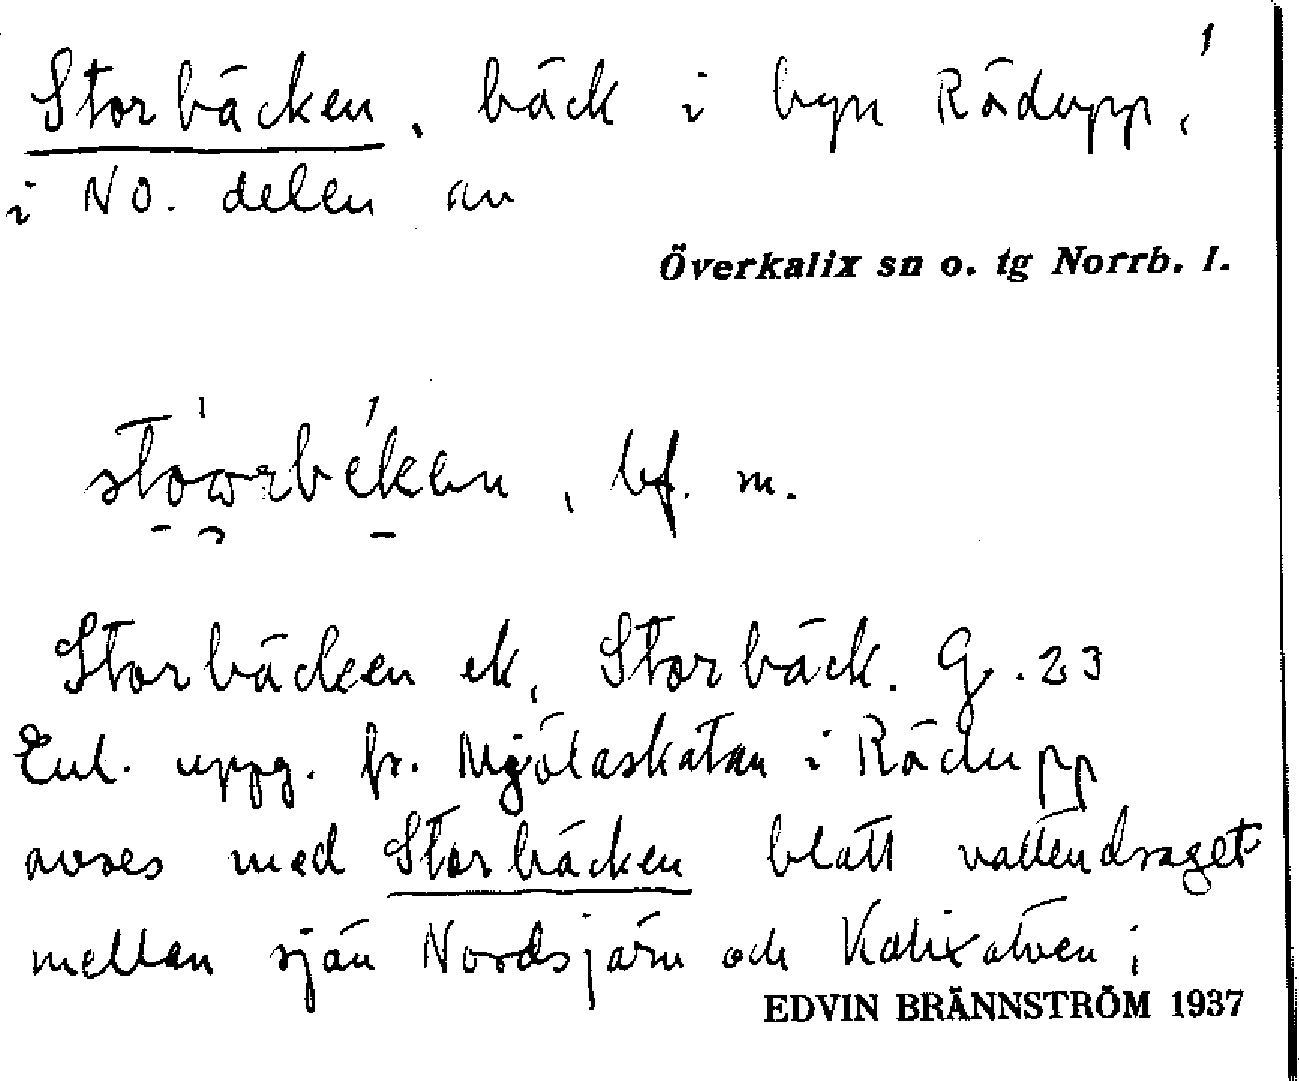 1
Storbäcken, bäck i byn Rödupp,
i NO. delen av
Överkalix sn o. tg Norrb. l.
bf. m.
Storbäcken ek, Storbäck. G. 23
Enl. uppg. fr. i Rödupp
avses med Storbäcken blott vattendraget
mellan sjön och Kalixälven;
EDVIN BRÄNNSTRÖM 1937